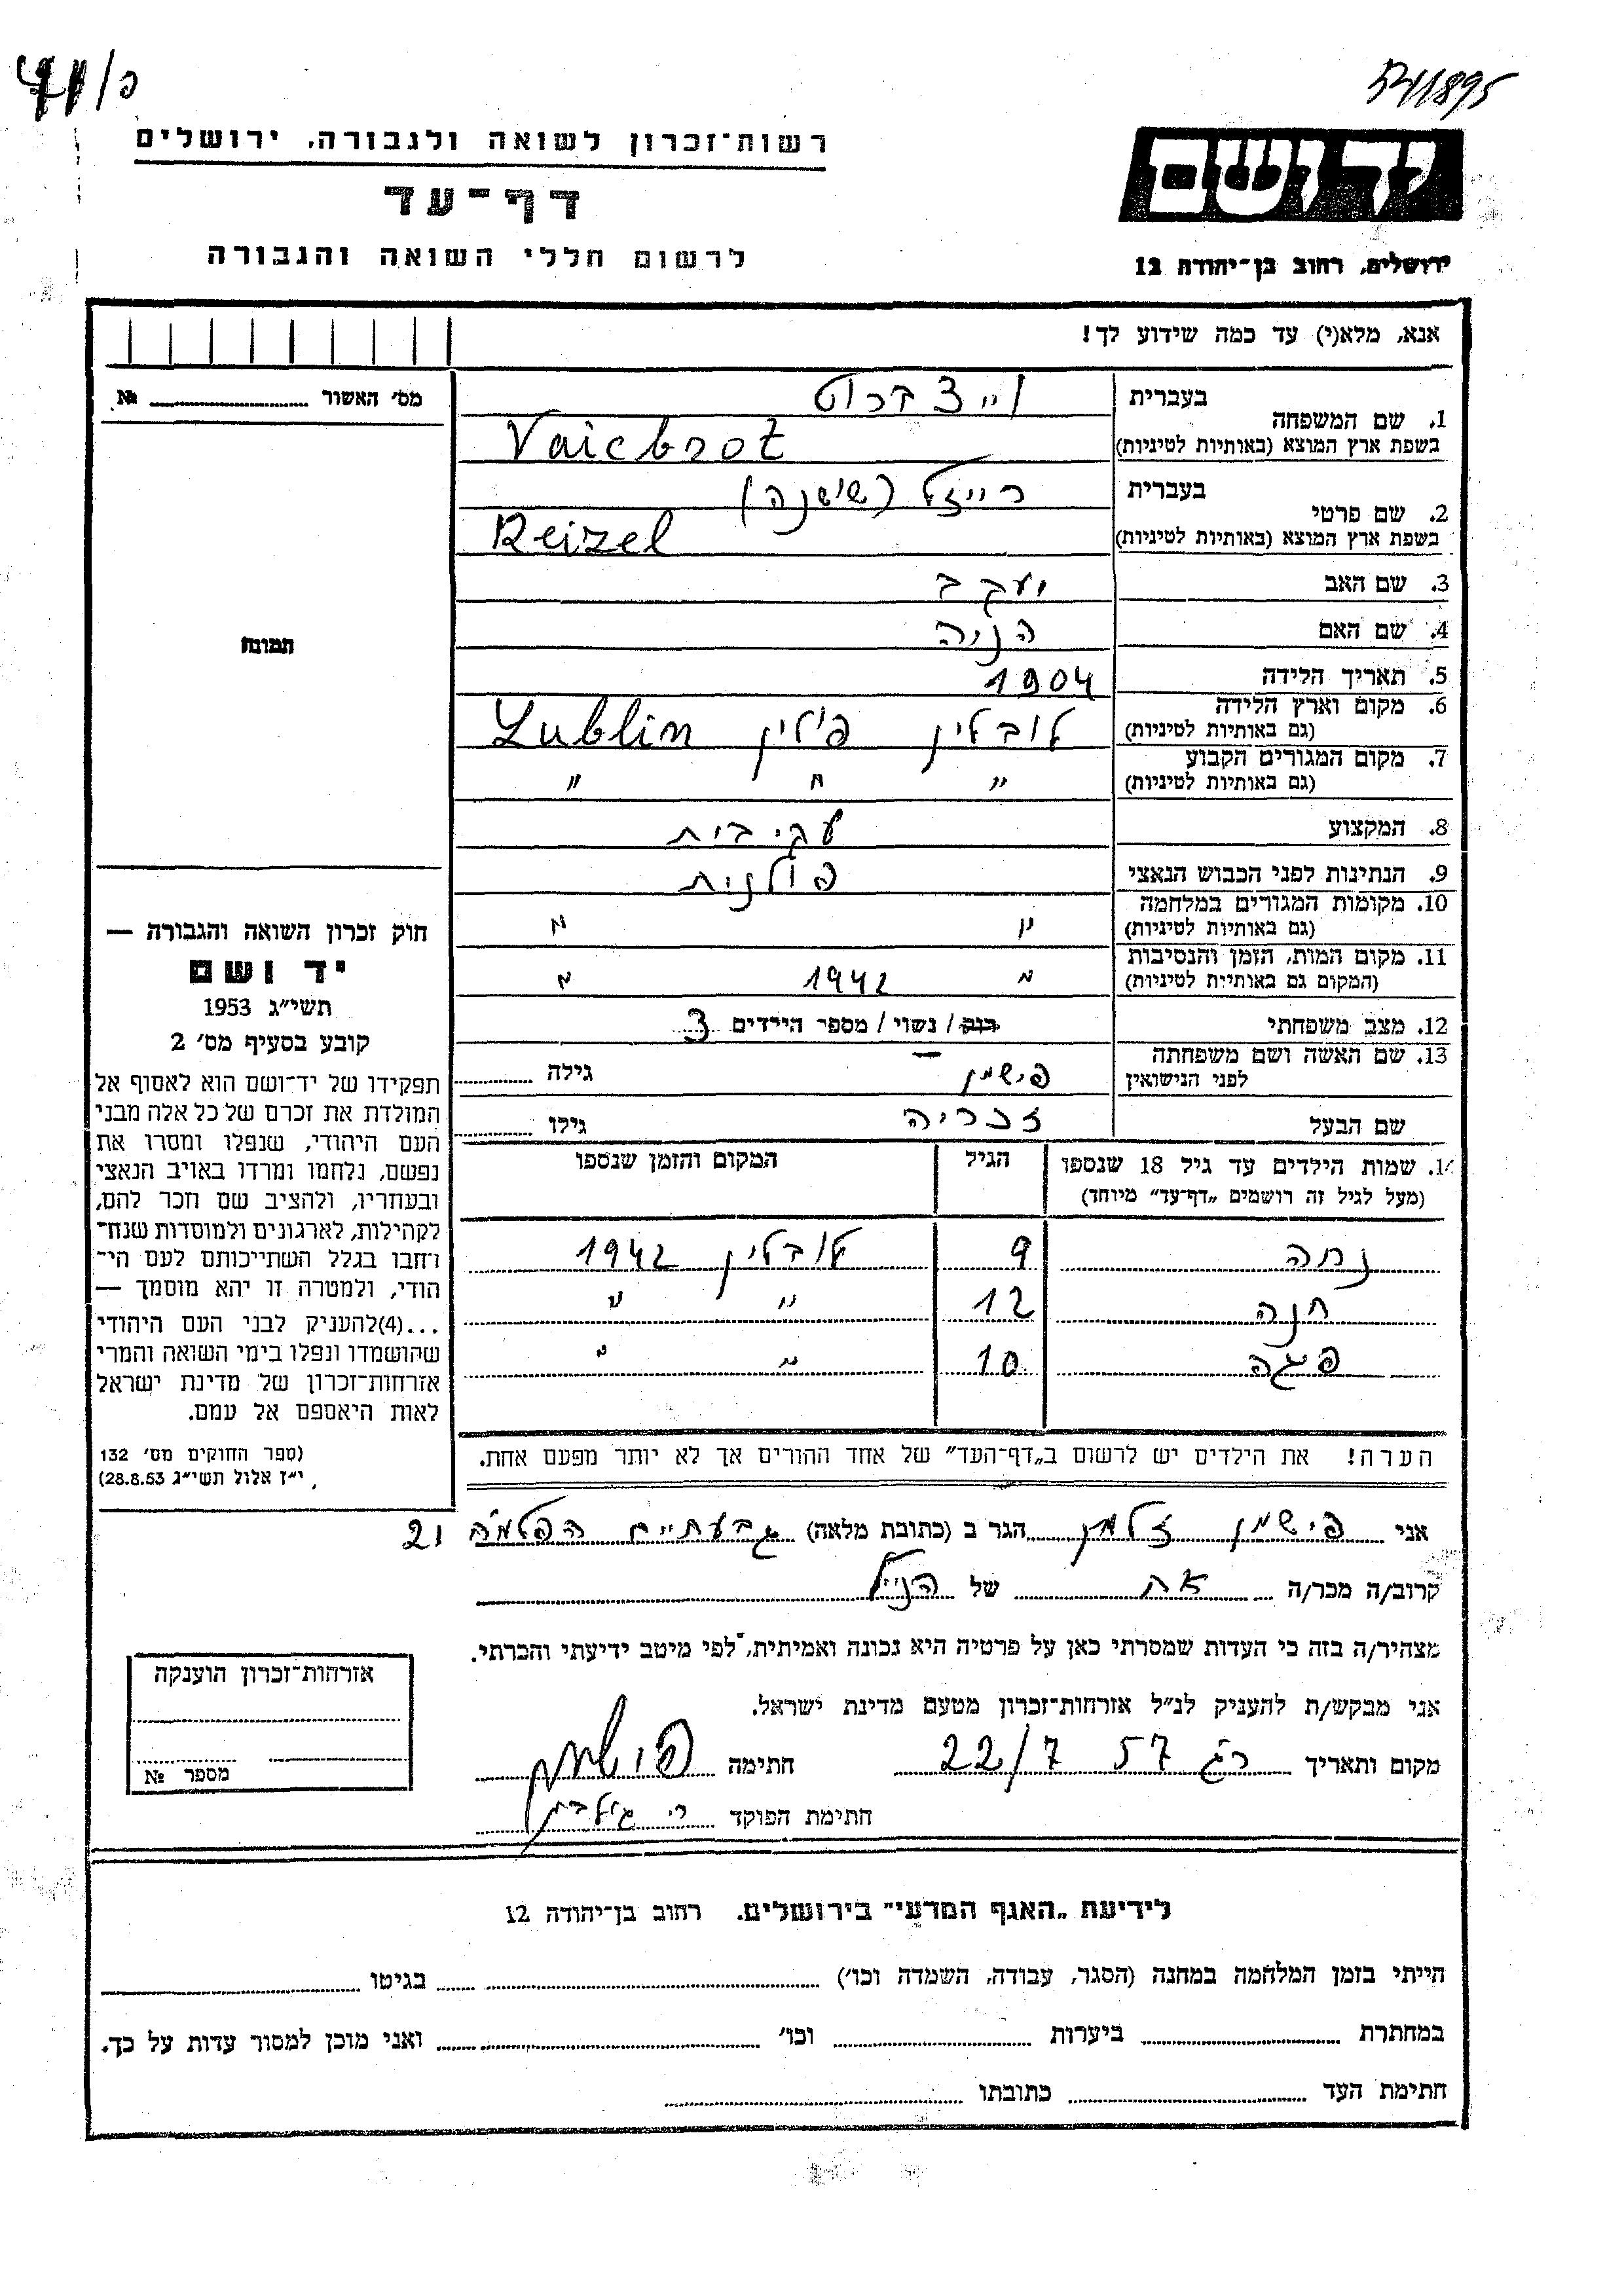 541895
רשות־זכרון לשואה ולגבורה, ירושלים
דף־עד
לרשום חללי השואה והגבורה
יד ושם
ירושלים, רחוב בן־יהודה 12
אנא, מלא(י) עד כמה שידוע לך!
מס׳ האשור № 
תמונה
1. שם המשפחה בעברית וייצברוט
בשפת ארץ המוצא (באותיות לטיניות) Vaicbrot
2. שם פרטי בעברית רייזל (שושנה)
בשפת ארץ המוצא (באותיות לטיניות) Reizel
3. שם האב יעקב
4. שם האם הניה
5. תאריך הלידה 1904
6. מקום וארץ הלידה (גם באותיות לטיניות) לובלין פולין Lublin
7. מקום המגורים הקבוע (גם באותיות לטיניות) " " "
8. המקצוע עקי בית
9. הנתינות לפני הכבוש הנאצי פולנית
10. מקומות המגורים במלחמה (גם באותיות לטיניות) " "
11. מקום המות, הזמן והנסיבות (המקום גם באותיות לטיניות) " 1942 "
12. מצב משפחתי רווק / נשוי / מספר הילדים 3
13. שם האשה ושם משפחתה לפני הנישואין פישמן גילה
שם הבעל זכריה גילו
14. שמות הילדים עד גיל 18 שנספו הגיל המקום והזמן שנספו
(מעל לגיל זה רושמים „דף־עד״ מיוחד)
נחה 9 לובלין 1942
חנה 12 " "
פיגה 10 " "
הערה! את הילדים יש לרשום ב„דף־העד״ של אחד ההורים אך לא יותר מפעם אחת.
חוק זכרון השואה והגבורה —
יד ושם
תשי״ג 1953
קובע בסעיף מס׳ 2
תפקידו של יד־ושם הוא לאסוף אל
המולדת את זכרם של כל אלה מבני
העם היהודי, שנפלו ומסרו את
נפשם, נלחמו ומרדו באויב הנאצי
ובעוזריו, ולהציב שם וזכר להם,
לקהילות, לארגונים ולמוסדות שנח־
רבו בגלל השתייכותם לעם הי־
הודי, ולמטרה זו יהא מוסמך —
...(4)להעניק לבני העם היהודי
שהושמדו ונפלו בימי השואה והמרי
אזרחות־זכרון של מדינת ישראל
לאות היאספם אל עמם.
(ספר החוקים מס׳ 132
י״ז אלול תשי״ג 28.8.53)
אני פישמן זלמן הגר ב (כתובת מלאה) גבעתיים הפלמ״ח 21
קרוב/ה מכר/ה אח של הנ״ל
מצהיר/ה בזה כי העדות שמסרתי כאן על פרטיה היא נכונה ואמיתית, לפי מיטב ידיעתי והכרתי.
אני מבקש/ת להעניק לנ״ל אזרחות־זכרון מטעם מדינת ישראל.
מקום ותאריך רג 22/7 57 חתימה פישמן
חתימת הפוקד
אזרחות־זכרון הוענקה
מספר №
לידיעת „האגף המדעי״ בירושלים. רחוב בן־יהודה 12
הייתי בזמן המלחמה במחנה (הסגר, עבודה, השמדה וכו׳) בגיטו
במחתרת ביערות וכו׳ ואני מוכן למסור עדות על כך.
חתימת העד כתובתו